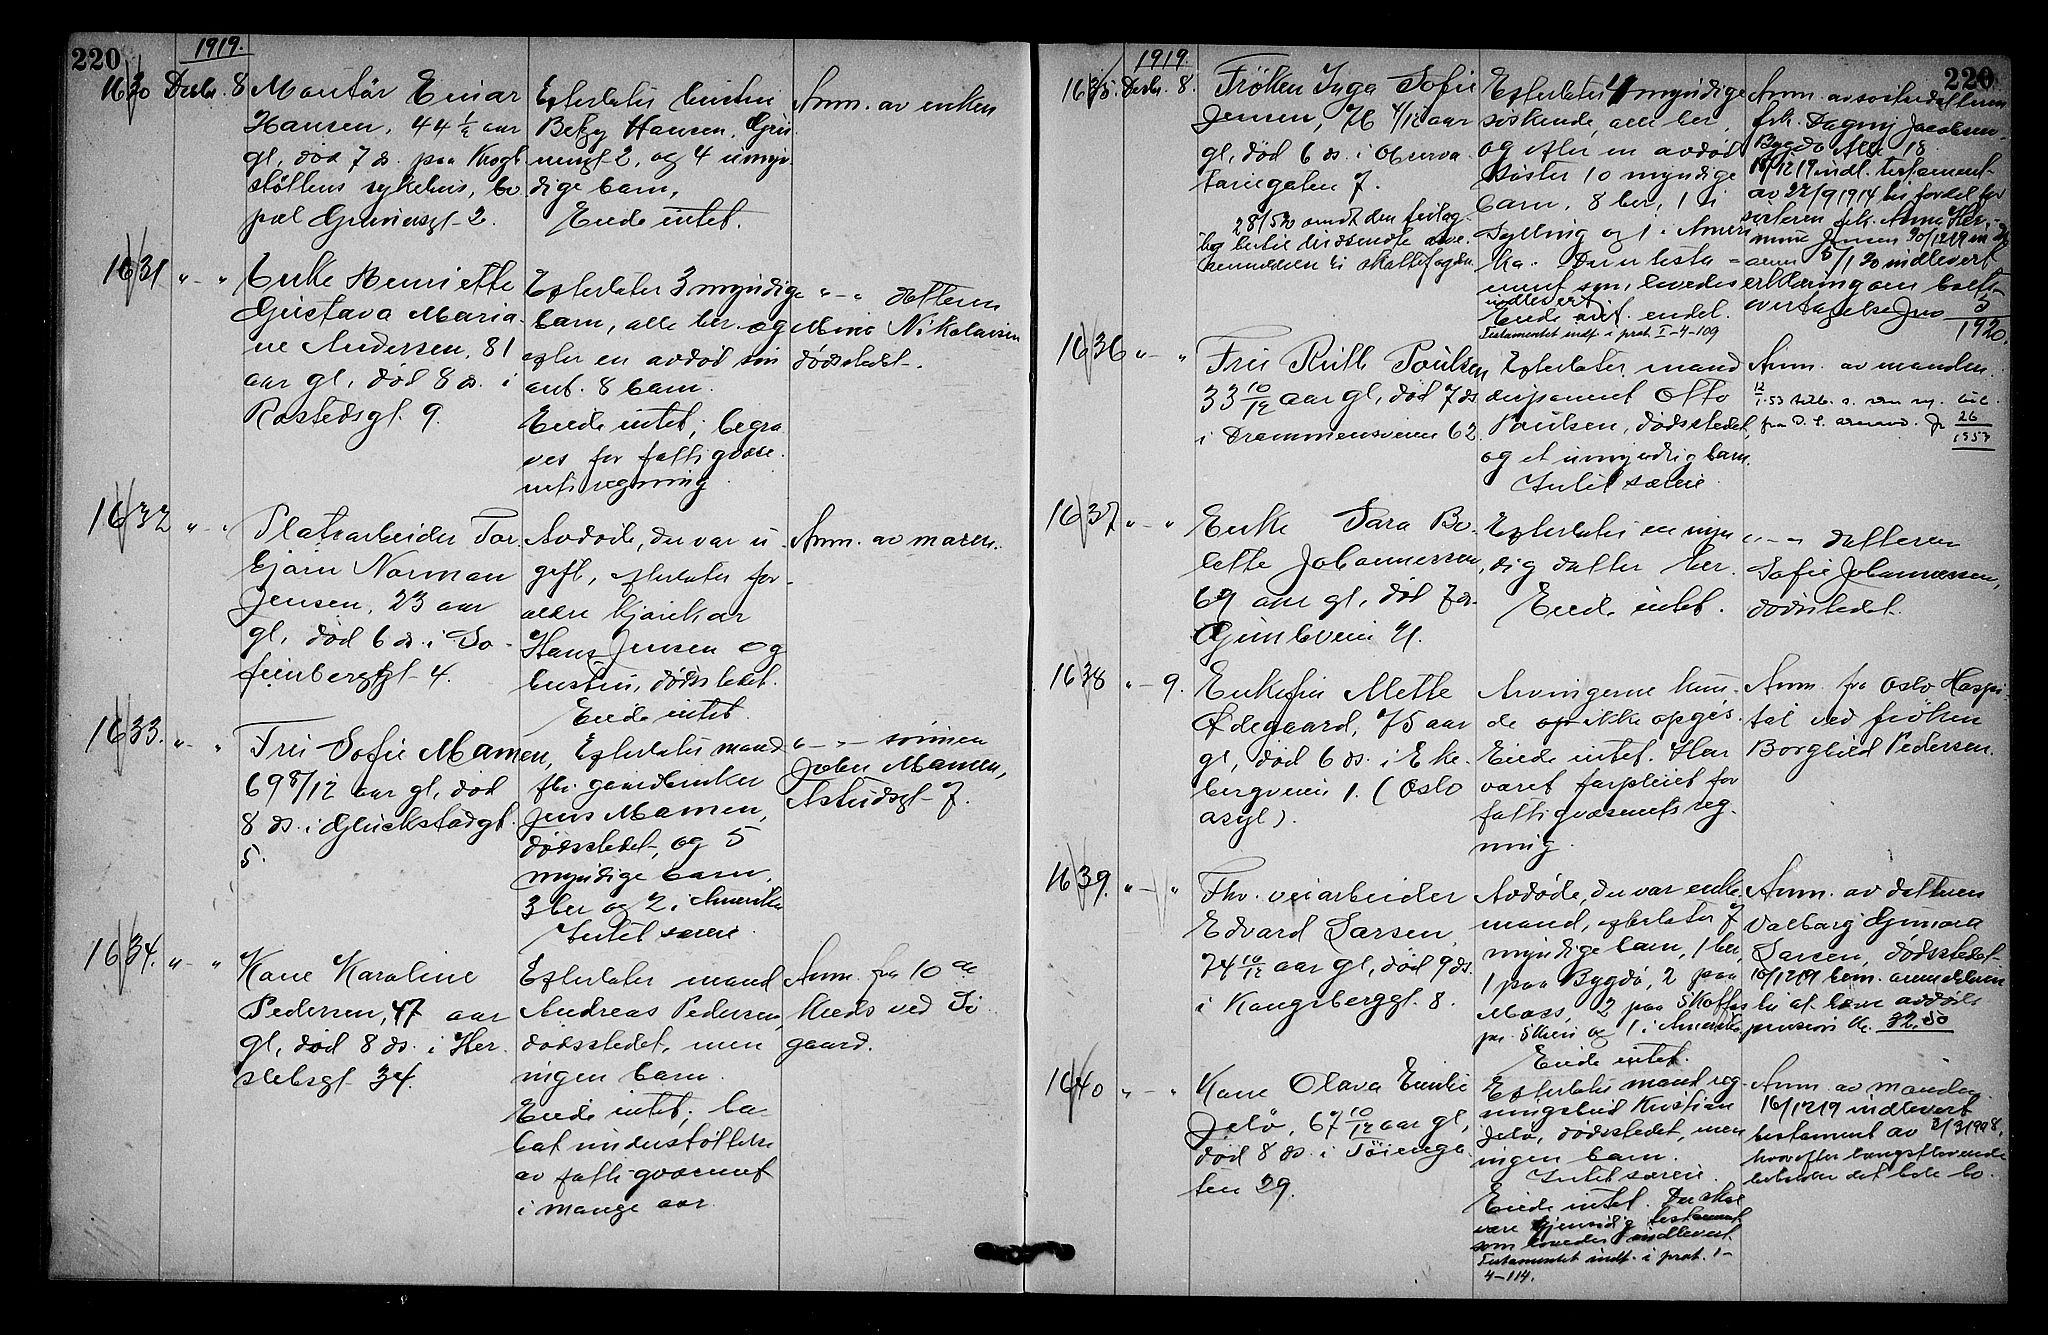 220
1919.
1630 Desbr. 8
Montör Einar
Hansen, 44 1/2 aar
gl, död 7 ds. paa Krogh
stöttens sykehus, bo
pæl Grünersgt 2.
Efterlater hustru
Betzy Hansen, Grü
nersgt 2, og 4 umyn
dige barn.
Eiede intet.
Anm. av enken
1631 " - "
Enke Henriette
Gustava Maria
ne Andersen, 81
aar gl, död 8 ds. i
Rostedsgt. 9.
Efterlater 3 myndige
barn, alle her og
efter en avdöd sön
ant. 8 barn.
Eiede intet; begra
ves for fattigvæse
nets regning.
" - " datteren
Mina Nikolaisen
dödsstedet.
1632 " - "
Platearbeider Tor
björn Norman
Jensen, 23 aar
gl, död 6 ds. i So
fienberggt 4.
Avdöde, der var u
gift, efterlater for
ældre kjörekar
Hans Jensen og
hustru, dödsstedet.
Eiede intet.
Anm. av moren.
1633. " - "
Fru Sofie Mamen,
69 8/12 aar gl, död
8 ds. i Glückstadgt.
5.
Efterlater mand
fhv. gaardbruker
Jens Mamen,
dödsstedet, og 5
myndige barn,
3 her og 2 i Amerika
Intet særeie.
" - " sönnen
John Mamen,
Astridsgt 7.
1634. " - "
Kone Karoline
Pedersen, 47 aar
gl, död 8 ds. i Her
slebsgt 34.
Efterlater mand
Andreas Pedersen,
dödsstedet, men
ingen barn.
Eiede intet; ha
hat understöttelse
av fattigvæsenet
i mange aar.
Anm. fra 10de
Kreds ved
gaard.
220
1919.
1635. Desbr. 8.
Fröken Inga Sofie
Jensen, 76 4/12 aar
gl, död 6 ds. i Observa
toriegaten 7.
28/5 20 sendt den
Efterlater 4 myndige
söskende, alle her,
og efter en avdöd
söster 10 myndige
barn, 8 her, 1 i
Sylling og 1 i Ameri
ka. Der er testa-
ment som lovedes
indlevert
Eiede
Testamentet indf. i prot. I-4-109
Anm. av sösterdatteren
frk. Dagny Jacobsen
Bygdö Alle 18.
18/12 19 indl. testament
av 22/9 1914 til fordel for
sösteren frk. Anna Her
mine Jensen 30/12 19
5/1 20 indlevert
erklæring om bo
overtagelse Jno 3
1920.
1636 " - "
Fru Ruth Poulsen
33 10/12 aar gl, död 7 ds
i Drammensveien 62.
Efterlater mand
Otto
Poulsen, dödsstedet,
og et umyndig barn.
Intet særeie.
Anm. av manden.
26
1953
1637 " - "
Enke Sara Bo
lette Johannessen,
69 aar gl, död 7 ds.
Gimleveien 21.
Efterlater en myn
dig datter her.
Eiede intet.
" - " datteren
Sofie Johannessen,
dödsstedet.
1638 " - 9.
Enkefru Mette
Ødegaard, 75 aar
gl, död 6 ds. i Eke
bergveien 1. (Oslo
asyl).
Arvingerne kun
de ikke opgis.
Eiede intet. Har
været forpleiet for
fattigvæsenets reg
ning.
Anm. fra Oslo Hospi
tal ved fröken
Borghild Pedersen.
1639. " - "
Fhv. veiarbeider
Edvard Larsen,
74 10/12 aar gl, död 9 ds.
i Kongsberggt. 8.
Avdöde, der var enke
mand, efterlater 7
myndige barn, 1 her,
1 paa Bygdö, 2 paa
Moss, 2 paa Skotfos
pr. Skien og 1 i Amerika
Eiede intet.
Anm. av datteren
Valborg Gunvora
Larsen, dödsstedet
10/12 19 bem. anmelderen
til at hæve avdödes
pension kr. 32,50
1640 " - "
Kone Olava Emilie
Jelö, 67 10/12 aar gl,
död 8 ds. i Töienga
ten 29.
Efterlater mand reg
ningsbud Kristian
Jelö, dödsstedet, men
ingen barn.
Intet særeie.
Eiede intet. Der skal
være gjensidig testament
som lovedes indlevert.
Testamentet indf. i prot. I-
4-114.
Anm. av manden.
16/12 19 indlevert
testament av 2/3 1908,
hvorefter længstlevende
beholder det hele bo.